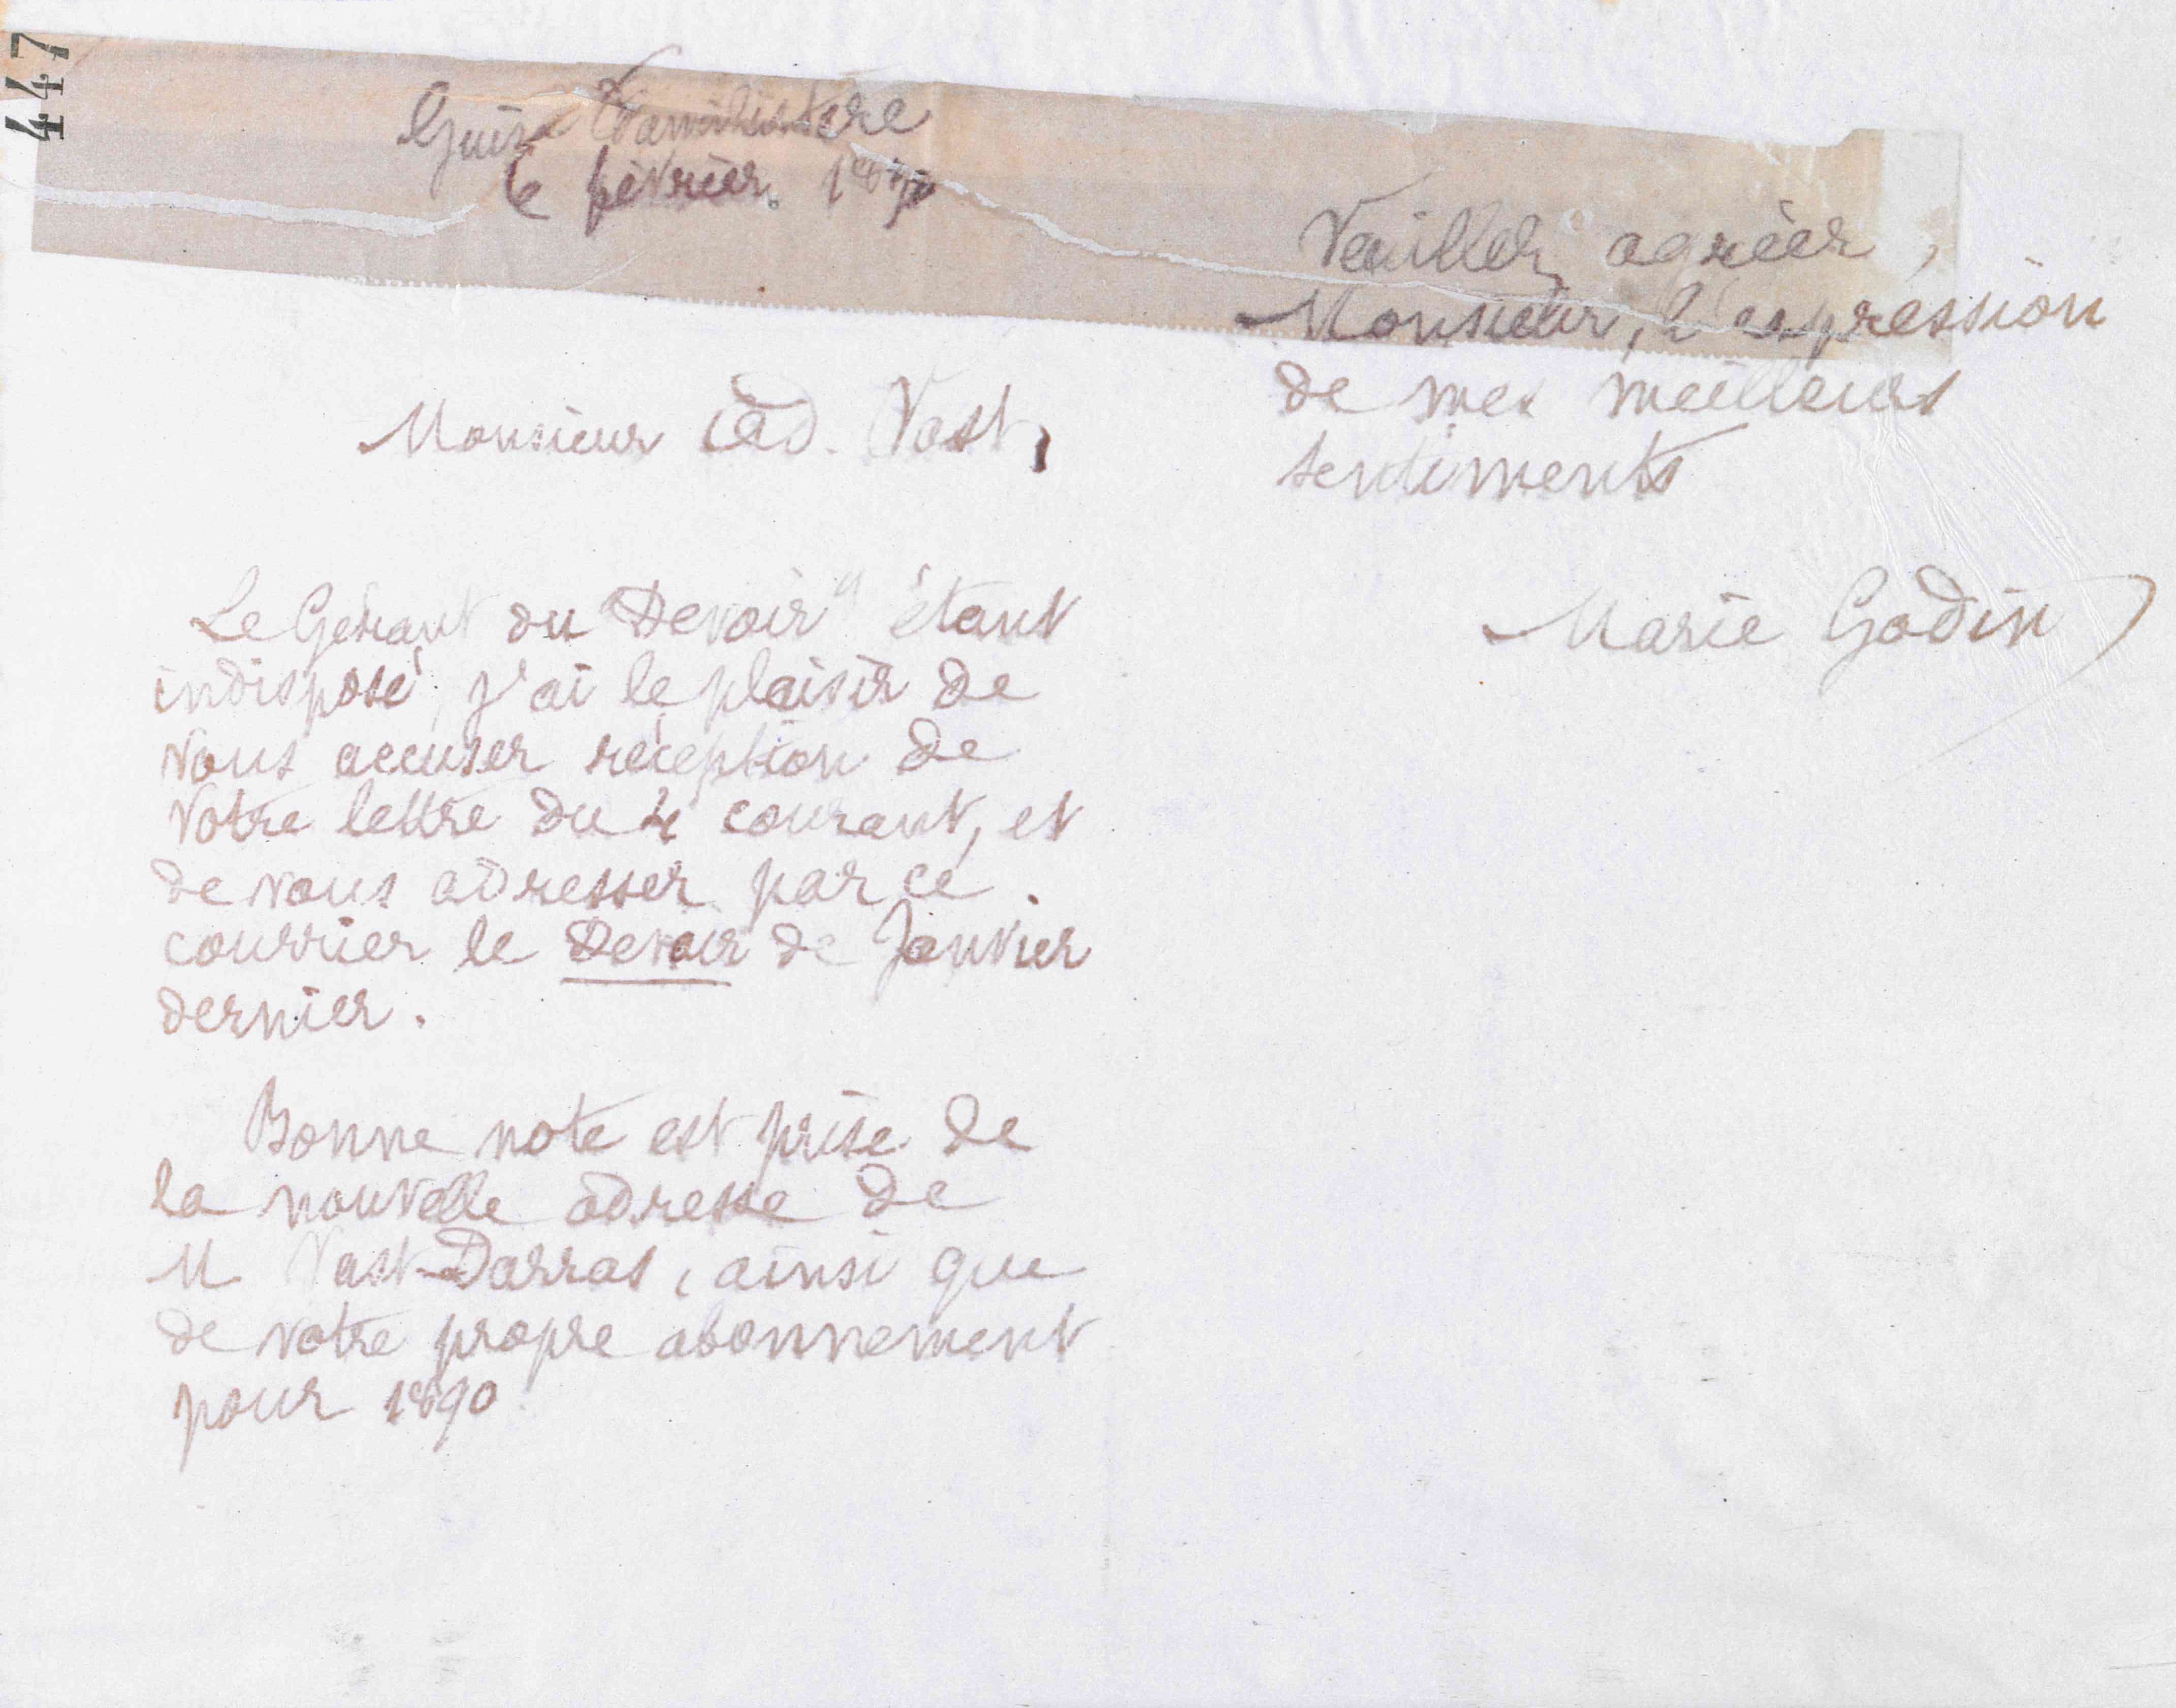 447
Guise Familistère
6 février 1890
Monsieur Ad. Vast,
Le Gérant du "Devoir" étant
indisposé, j'ai le plaisir de
vous accuser réception de
votre lettre du 4 courant, et
de vous adresser par ce
courrier le Devoir de Janvier
dernier.
Bonne note est prise de
la nouvelle adresse de
M Vast-Darras, ainsi que
de votre propre abonnement
pour 1890
Veuillez agréer,
Monsieur, l'expression
de mes meilleurs
sentiments
Marie Godin